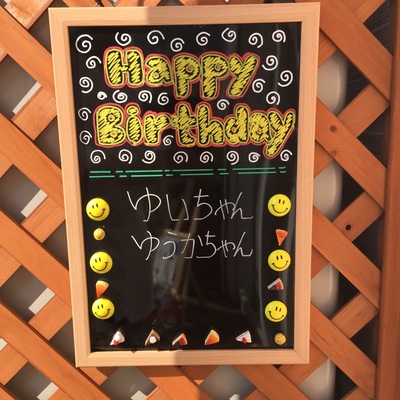 Happy
Birthday
ゆいちゃん
ゆうかちゃん